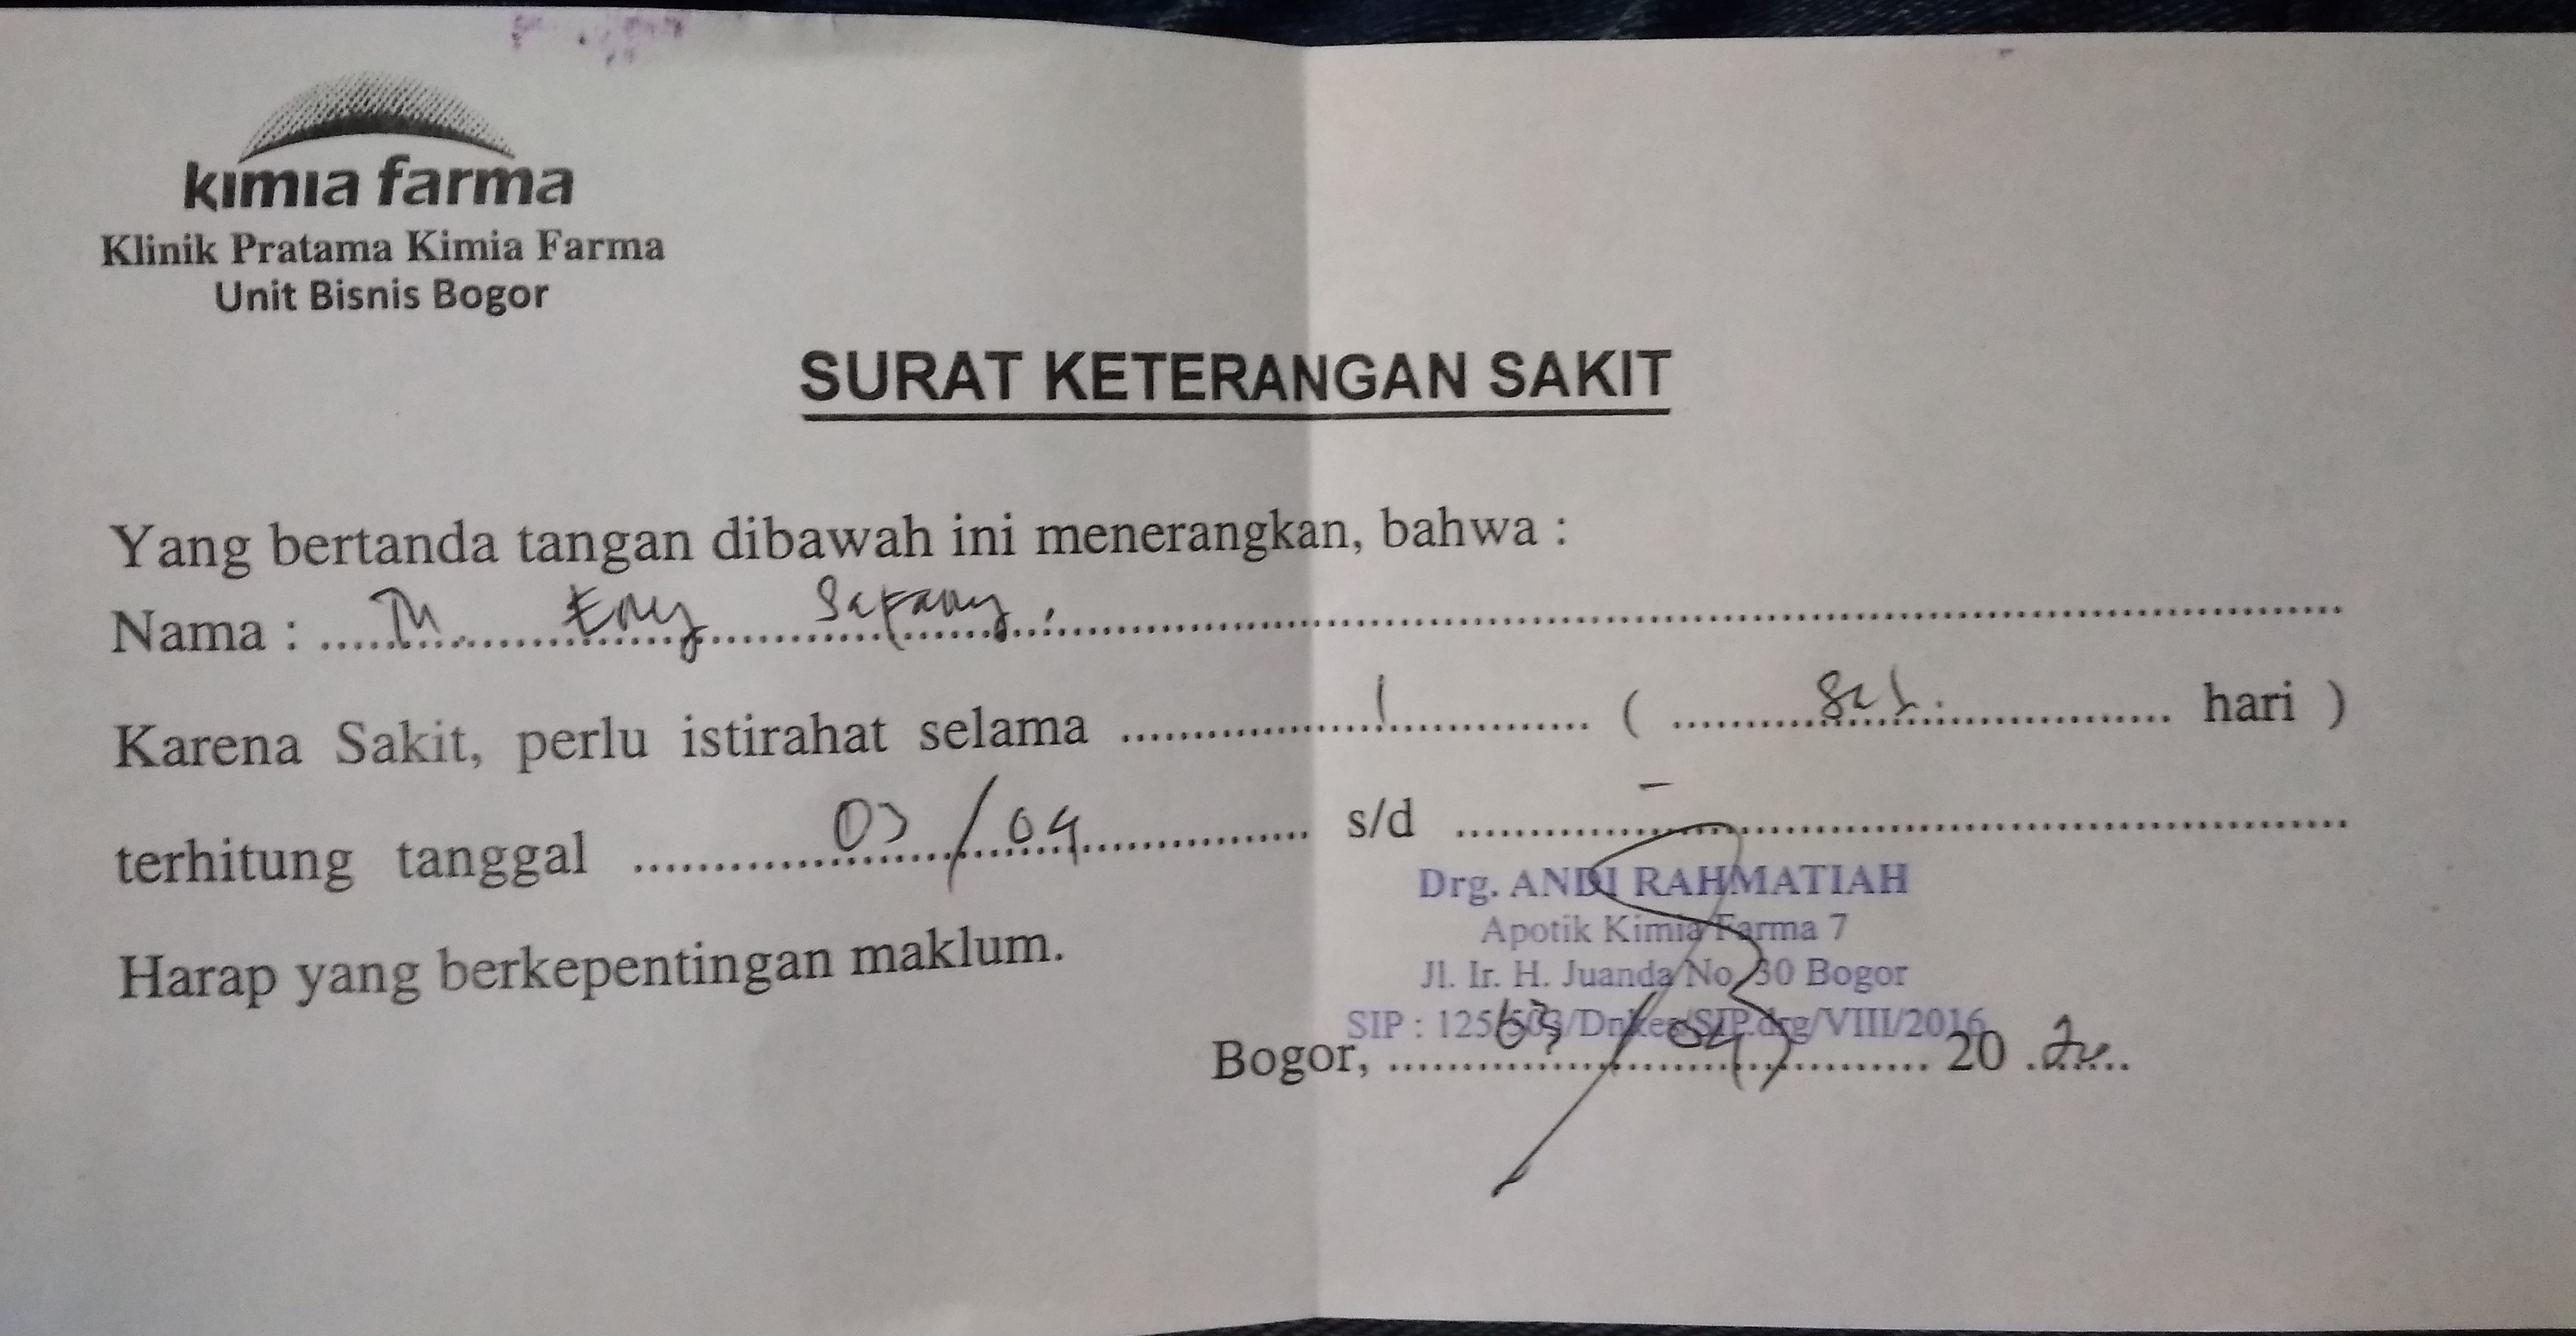 kimia farma
Klinik Pratama Kimia Farma
Unit Bisnis Bogor
SURAT KETERANGAN SAKIT
Yang bertanda tangan dibawah ini menerangkan, bahwa :
Nama : Tn. Eny
Karena Sakit, perlu istirahat selama 1 ( hari )
terhitung tanggal 03/04 s/d -
Harap yang berkepentingan maklum.
Drg. ANDI RAHMATIAH
Apotik Kimia Farma 7
Jl. Ir. H. Juanda No. 30 Bogor
SIP : /SIP.drg/VIII/2016
Bogor, 03/04 20